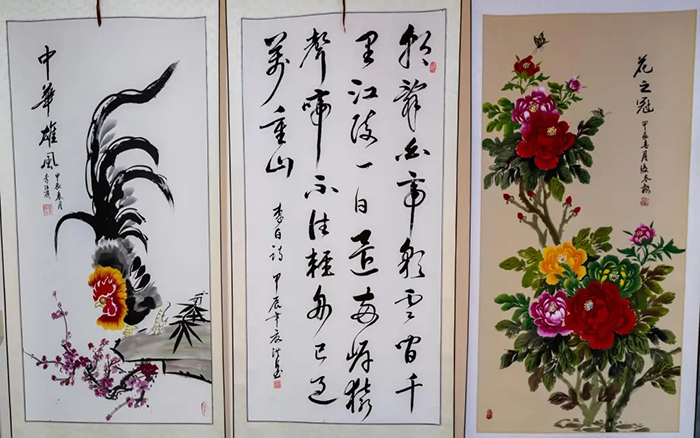 中華雄風
甲辰春月
朝辞白帝彩云間千
里江陵一日還兩岸猿
聲啼不住輕舟已过
萬重山
李白詩 甲辰年夏
花之冠
甲辰春月